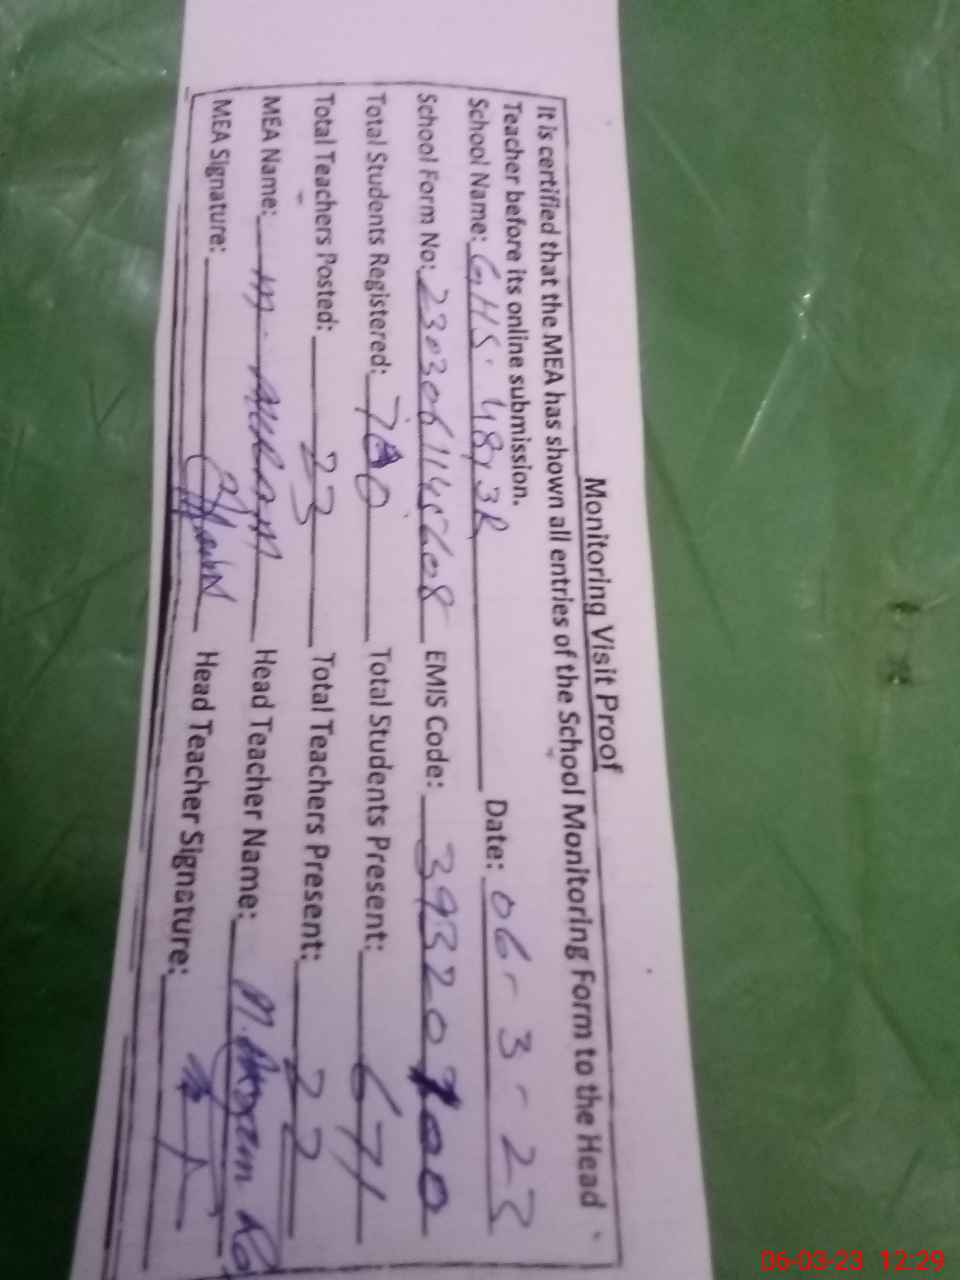 Monitoring Visit Proof
It is certified that the MEA has shown all entries of the School Monitoring Form to the Head
Teacher before its online submission.
School Name: GHS. 48/3R Date: 06-3-23
School Form No: EMIS Code:
Total Students Registered: Total Students Present: 671
Total Teachers Posted: 23 Total Teachers Present: 22
MEA Name: M. AKRAM Head Teacher Name: M.
MEA Signature: Head Teacher Signature:
06-03-23 12:29